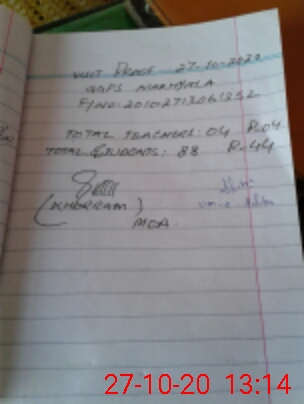 VISIT PROOF 27-10-2020
GGPS
F/NO: 20102713061352
TOTAL TEACHERS: 04 P=04
TOTAL STUDENTS: 88 P=44
(KHURRAM)
MEA.
27-10-20 13:14